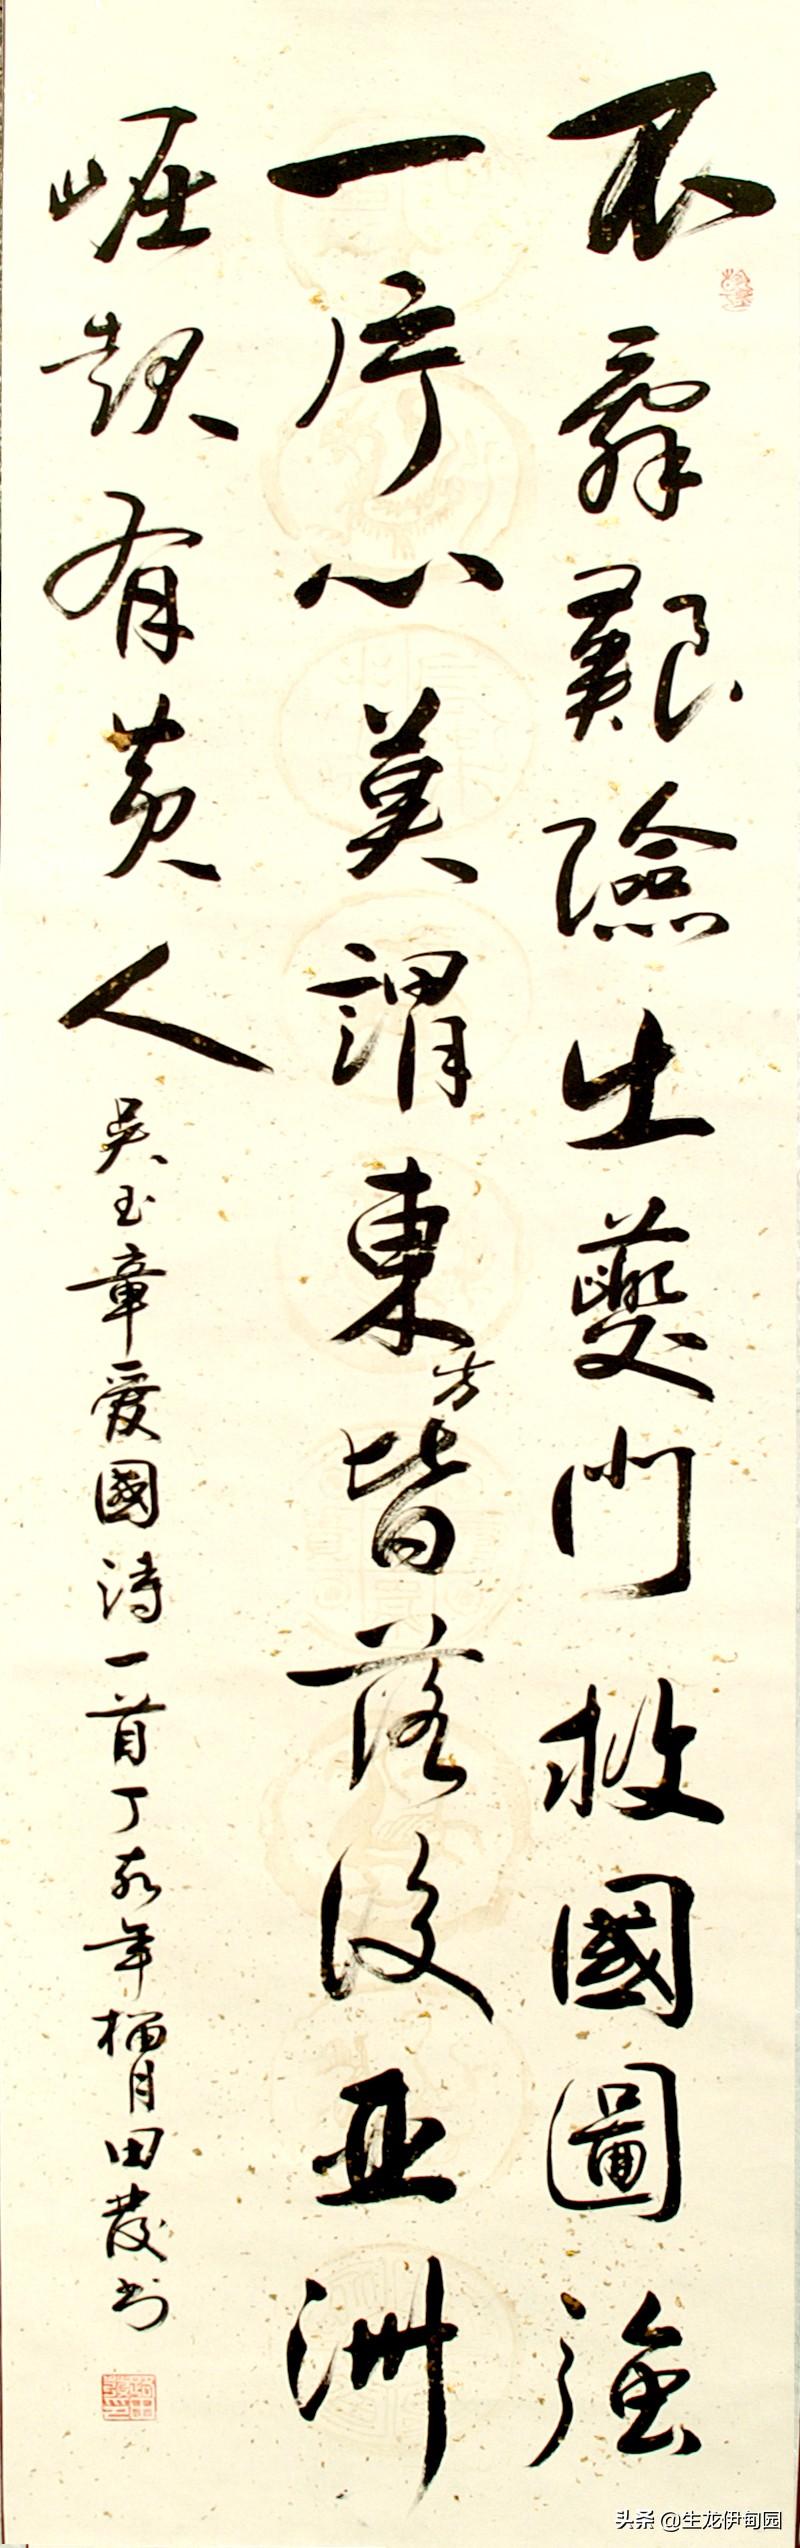 不辭艱險出夔門救國圖強
一片心莫謂東方皆落後亞洲
崛起有黄人
吴玉章愛國詩一首丁亥年榴月田發书
头条 @生龙伊甸园